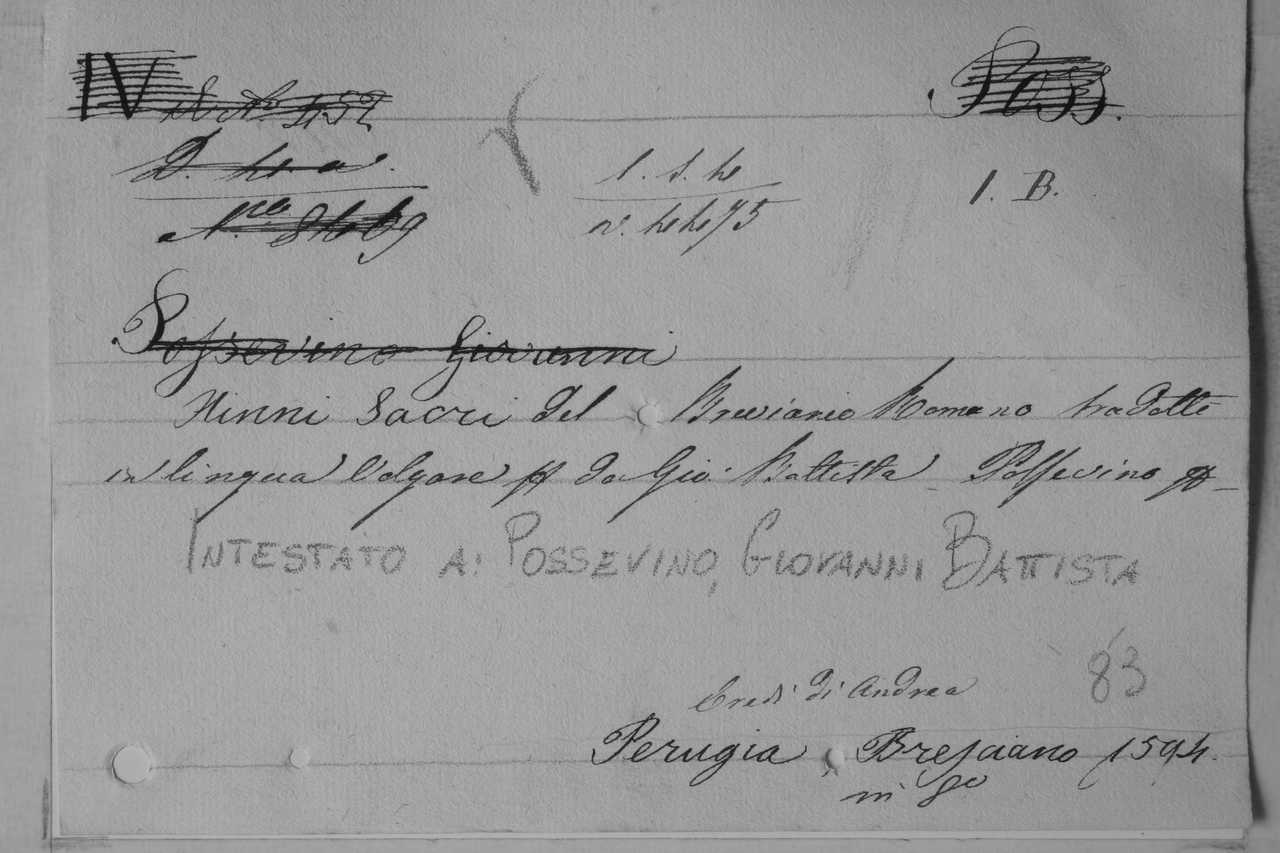 IV Poss.
I. B.
Possevino Giovanni
Hinni Sacri del Breviario Romano tradotti
in lingua Volgare da Gio. Battista Possevino
INTESTATO A: POSSEVINO, GIOVANNI BATTISTA
83
Eredi di Andrea
Perugia Bresciano 1594.
in 8º